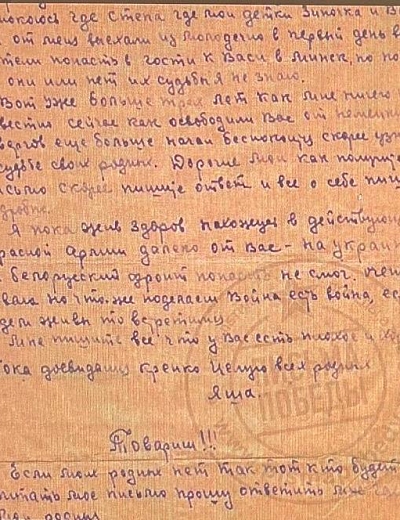 покоюсь где Степа где мои детки Зиночка и В
от меня выехали из Молодечно в первый день в
тели попасть в гости к Васи в Минск, но по
они или нет их судьбы я не знаю.
Вот уже больше трех лет как мне ничего
вестно сейчас как освободили Вас от немецки
варгов еще больше начал беспокоится скорее узн
судьбе своих родных. Дорогие мои как получите
исьмо скорее пишите ответ и все о себе пиш
дробно.
Я пока жив здоров нахожусь в действующе
расной армии далеко от Вас - на Украин
Белорусский фронт попасть не смог. очен
вала но что-же поделаеш Война есть война, ес
дем живы то встретимся
Мне пишите все что у Вас есть плохое и хо
Пока досвидания крепко Целую всех родных
Яша.
ПИСЬМА
ПОБЕДЫ
Товарищ!!!
Если моих родных нет так тот кто будет
читать мое письмо прошу ответить мне
Мои родных